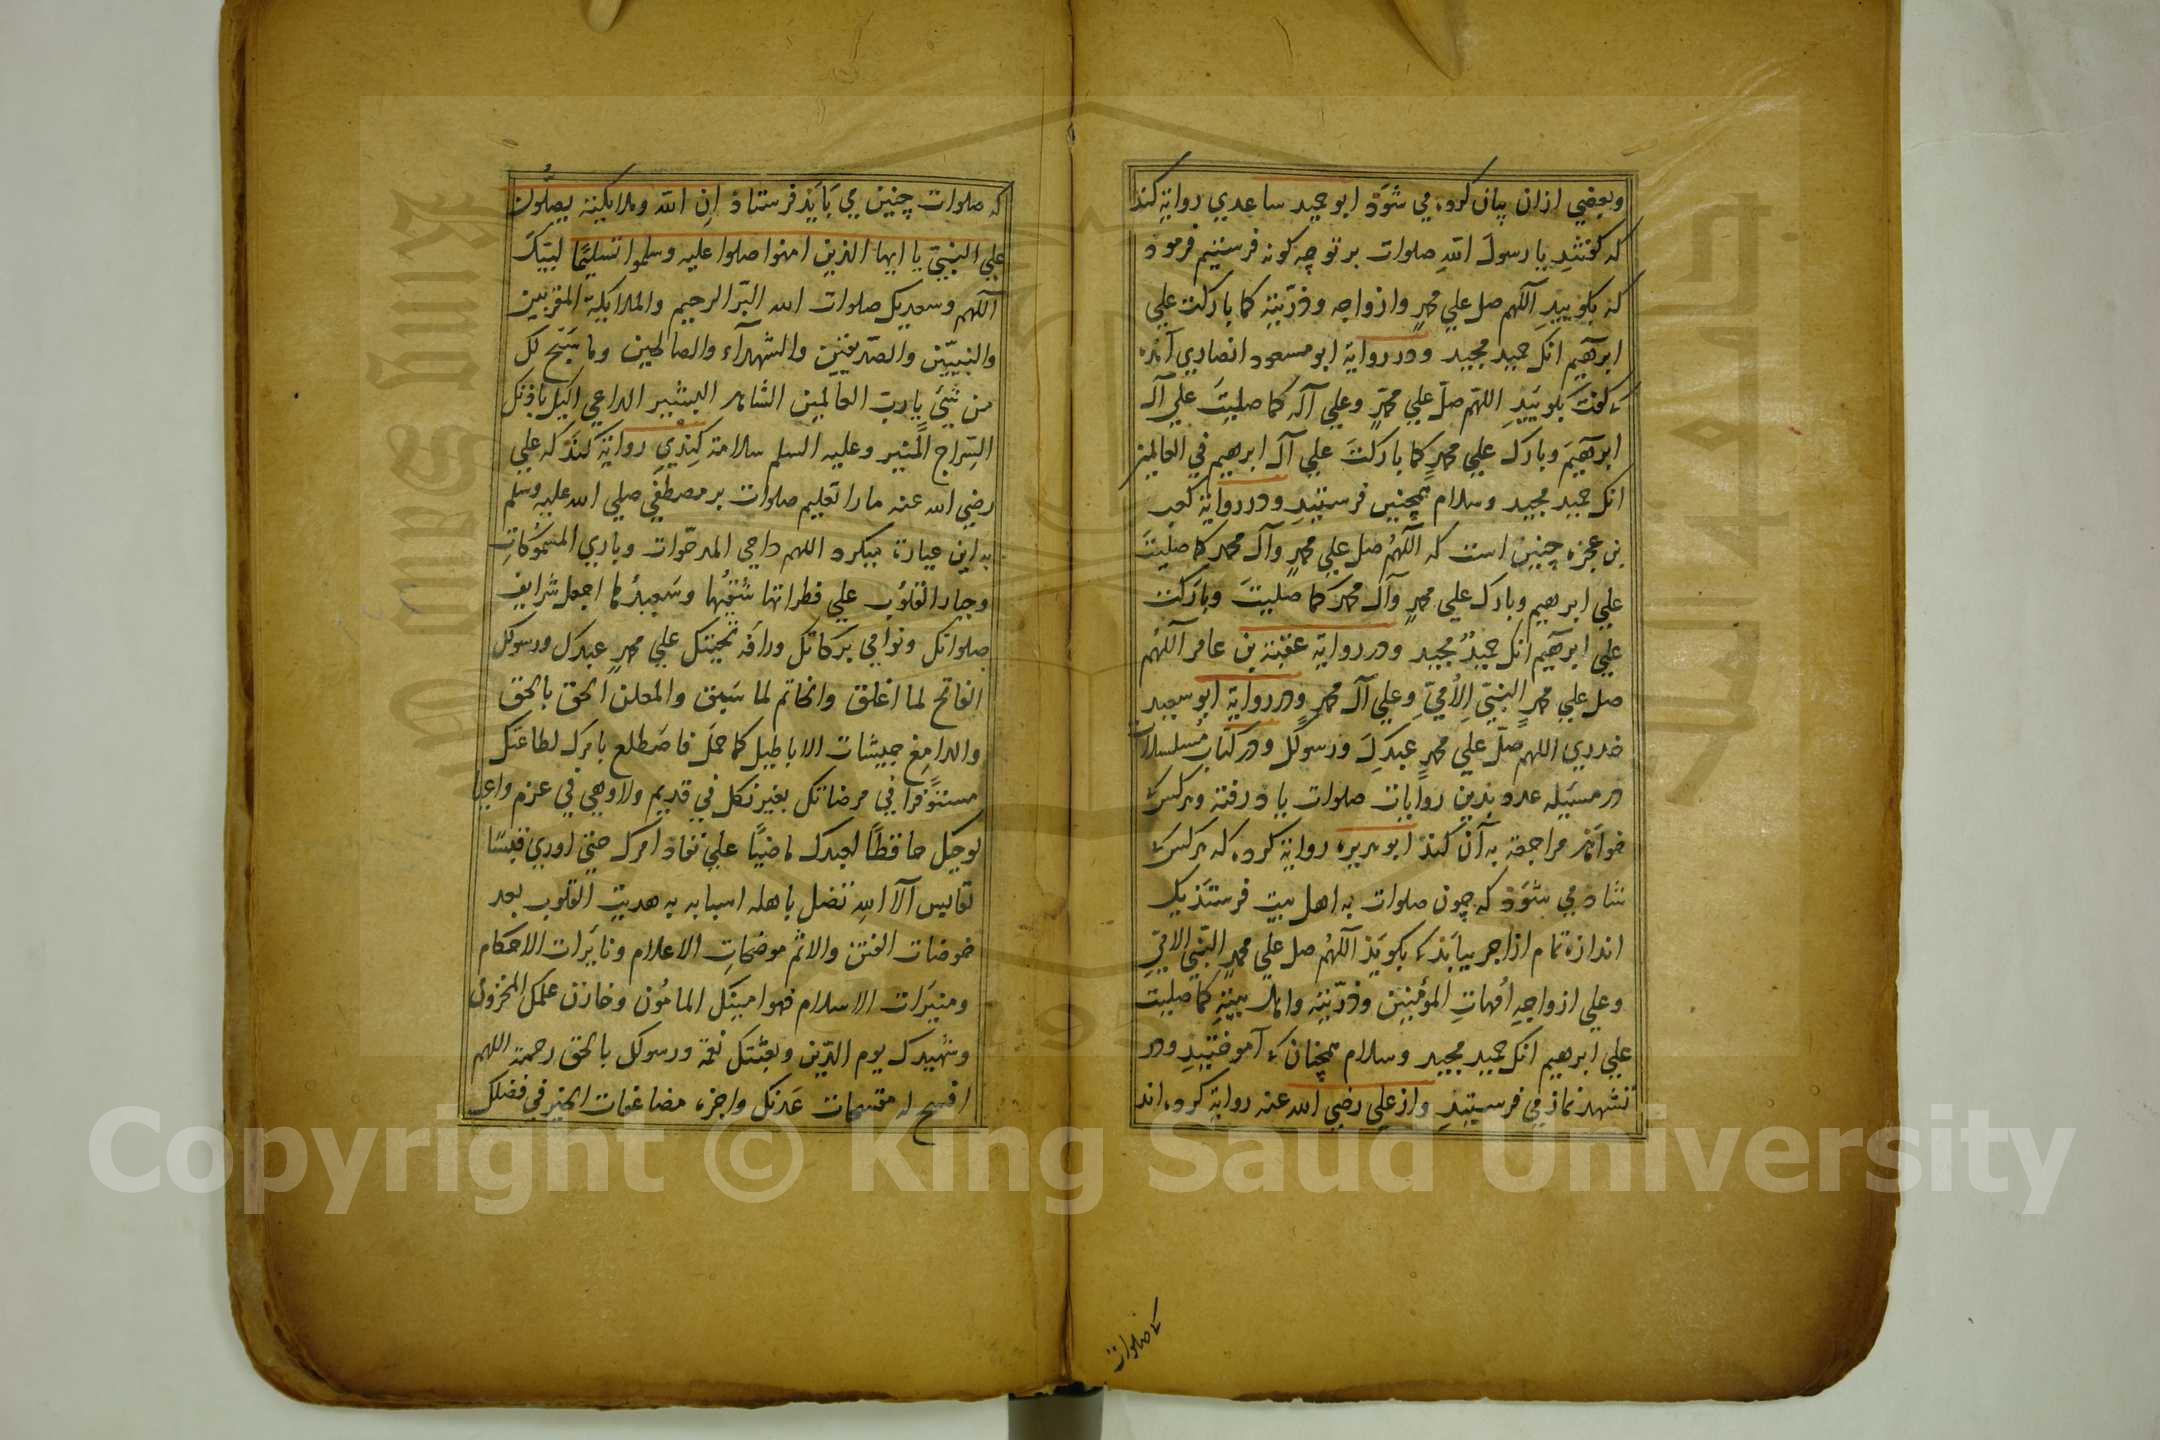 وبعضي ازان بيان كرده مي شَوَدْ ابو حميد ساعدي رواية كند
كه كفتند يا رسولَ اللهِ صلوات بر تو چه كونه فرستيم فرمود
كه بكوييدِ اللهم صل علي محمدٍ وازواجه وذرّيته كما باركت علي
ابرهيم انك حميد مجيد ودر رواية ابو مسعود انصاري آمده
كه كفت بكوييَدِ اللهمّ صلّ علي محمّدٍ وعلي آله كما صليتَ علي آل
ابرهيمَ وبارك علي محمدٍ كما باركتَ علي آل ابرهيم في العالمين
انك حميد مجيد وسلام همچنين فرستيدِ ودر رواية كعب
بن عجزه چنين است كه اللهُم صل علي محمدٍ وآل محمد كما صليتَ
علي ابرهيم وبارك علي محمدٍ وآل محمد كما صليتَ وباركت
علي ابرهيم انك حميدٌ مجيد ودر رواية عقبة بن عامر اللهُم
صل علي محمدٍ النبيّ الاُميّ وعلي آل محمدٍ ودر رواية ابو سعيد
خدري اللهم صلّ علي محمدٍ عبدِكَ ورسولك ودر كتاب مُسلسلات
در مسيَله عدو بدين روايات صلوات ياد رفته وهركس كه
خواهد مراجعة به آن كند ابو هريره رواية كرده كه هركس كه
شاد مي شَوَدْ كه چون صلوات به اهل بيت فرستَد يك
اندازه تمام از اجر بيابَد كه بكويَد اللهُم صل علي محمدٍ النّبي الاميّ
وعلي ازواجهِ اُمهاتِ المؤمنين وذرّيته واهل بيتهِ كما صليت
علي ابرهيم انك حميد مجيد وسلام همچنان كه آموختيدِ ودر
تشهد نماز مي فرستيدِ واز علي رضي الله عنه رواية كرده اند
كه صلوات
كه صلوات چنين مي بَايَد فرستاد اِن الله وملائكته يصلُّون
علي النبيّ يا ايها الذين امنوا صلوا عليه وسلموا تسليمًا لبيّكَ
اللهم وسعديك صلوات الله البَرّ الرحيم والملائكة المقربين
والنبيّين والصّديقين والشهدآء والصالحين وما سَبّح لك
من شيَء يا ربّ العالمين الشاهد البشير الداعي اليَك باذنك
السِّراج المُنير وعليه السلم سلامة كِندي رواية كندَ كه علي
رضي الله عنه ما را تعليم صلوات بر مصطفي صلي الله عليه وسلم
بداين عبارة ميكرد اللهم داحي المدحّوات وباري المسمُوكاتِ
وجبار القلُوب علي فطراتها شقيّها وسَعيدُها اجعل شرايف
صلواتك ونوامي بَركاتك ورافه تحيتك علي محمدٍ عبدك ورسولك
الفاتح لما اغلق والخاتم لما سَبق والمعلن الحق بالحق
والدامغ جيشات الاباطيل كما حملَ فاضَطلع بامرك لطاعتك
مستوَفرًا في مرضاتك بغير نكل في قديم ولا وهي في عزم واعيا
لوحيك حافظًا لعهدك ماضيًا علي نفاذ امرك حتي اوري قبسًا
لقابس آلا اللهِ تصل باهله اسبابه به هديتِ القلوب بعد
خوضات الفتن والاثم موضحاتِ الاعلام ونايَرات الاحكام
ومنيَرات الاسلام فهو امينك المامُون وخازن علمك المخزون
وشهيدك يوم الدّين وبعثتك نعمة ورسولك بالحق رحمة اللهم
افسح له مفسحات عَدنك واجزه مضاعفات الخير في فضلك
Copyright © King Saud University